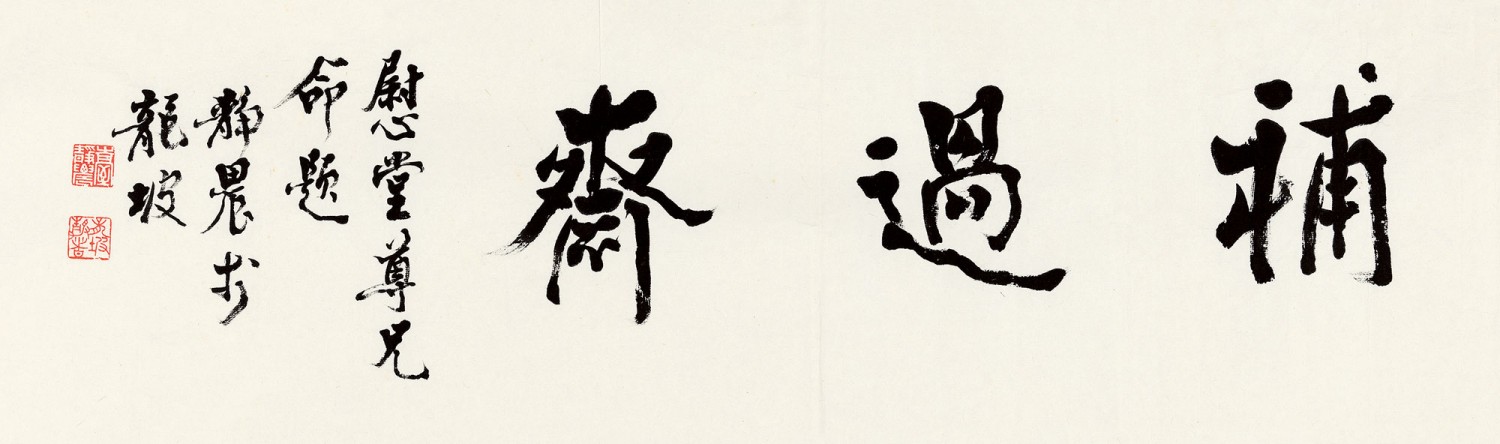 補過齋
慰堂尊兄
命題
靜農於
龍坡